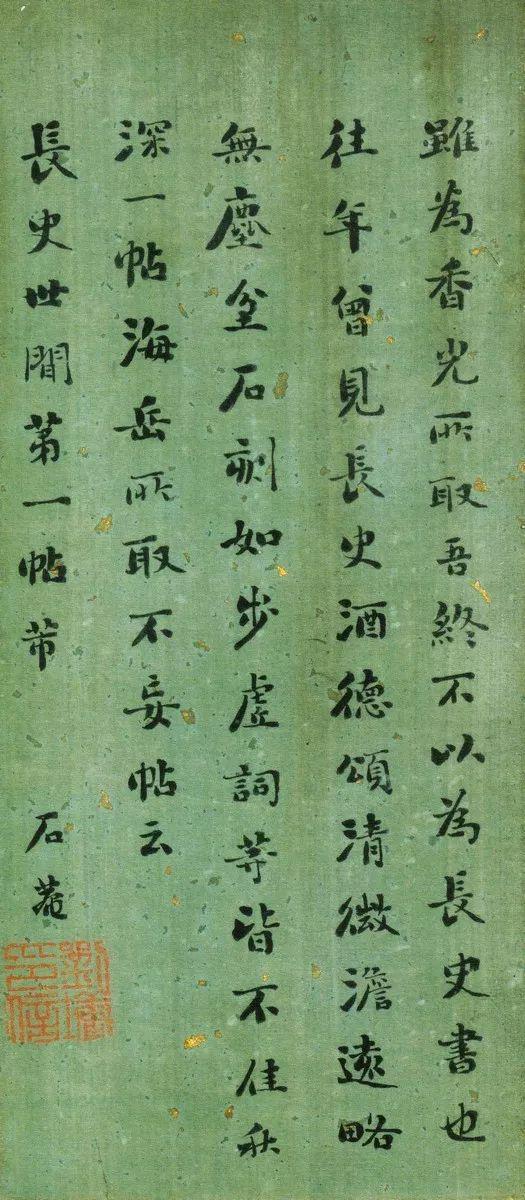 雖為香光所取吾終不以為長史書也
往年曾見長史酒德頌清微澹遠略
無塵坌石刻如步虛詞等皆不佳秋
深一帖海岳所取不妄帖云
長史世間第一帖芾
石菴
劉墉印信